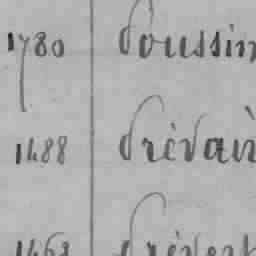 1780 Poussin
1488 Prévain
1468 Prévert